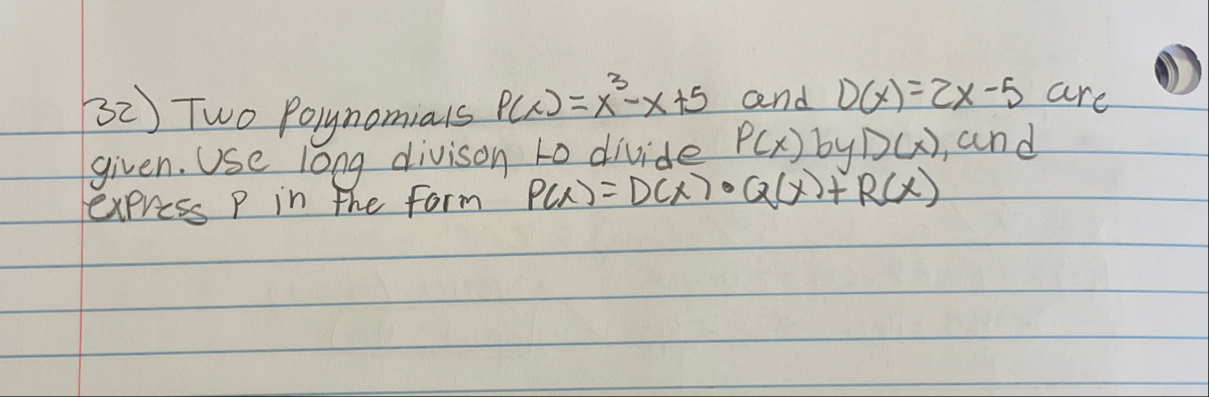 32) Two Polynomials P(x)=x³-x+5 and D(x)=2x-5 are
given. Use long divison to divide P(x) by D(x), and
express P in the form P(x)=D(x)•Q(x)+R(x)